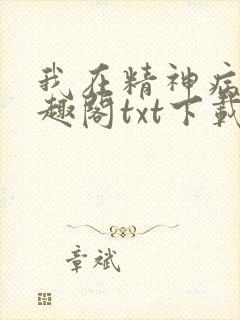 我在精神病
趣阁txt下载
章斌